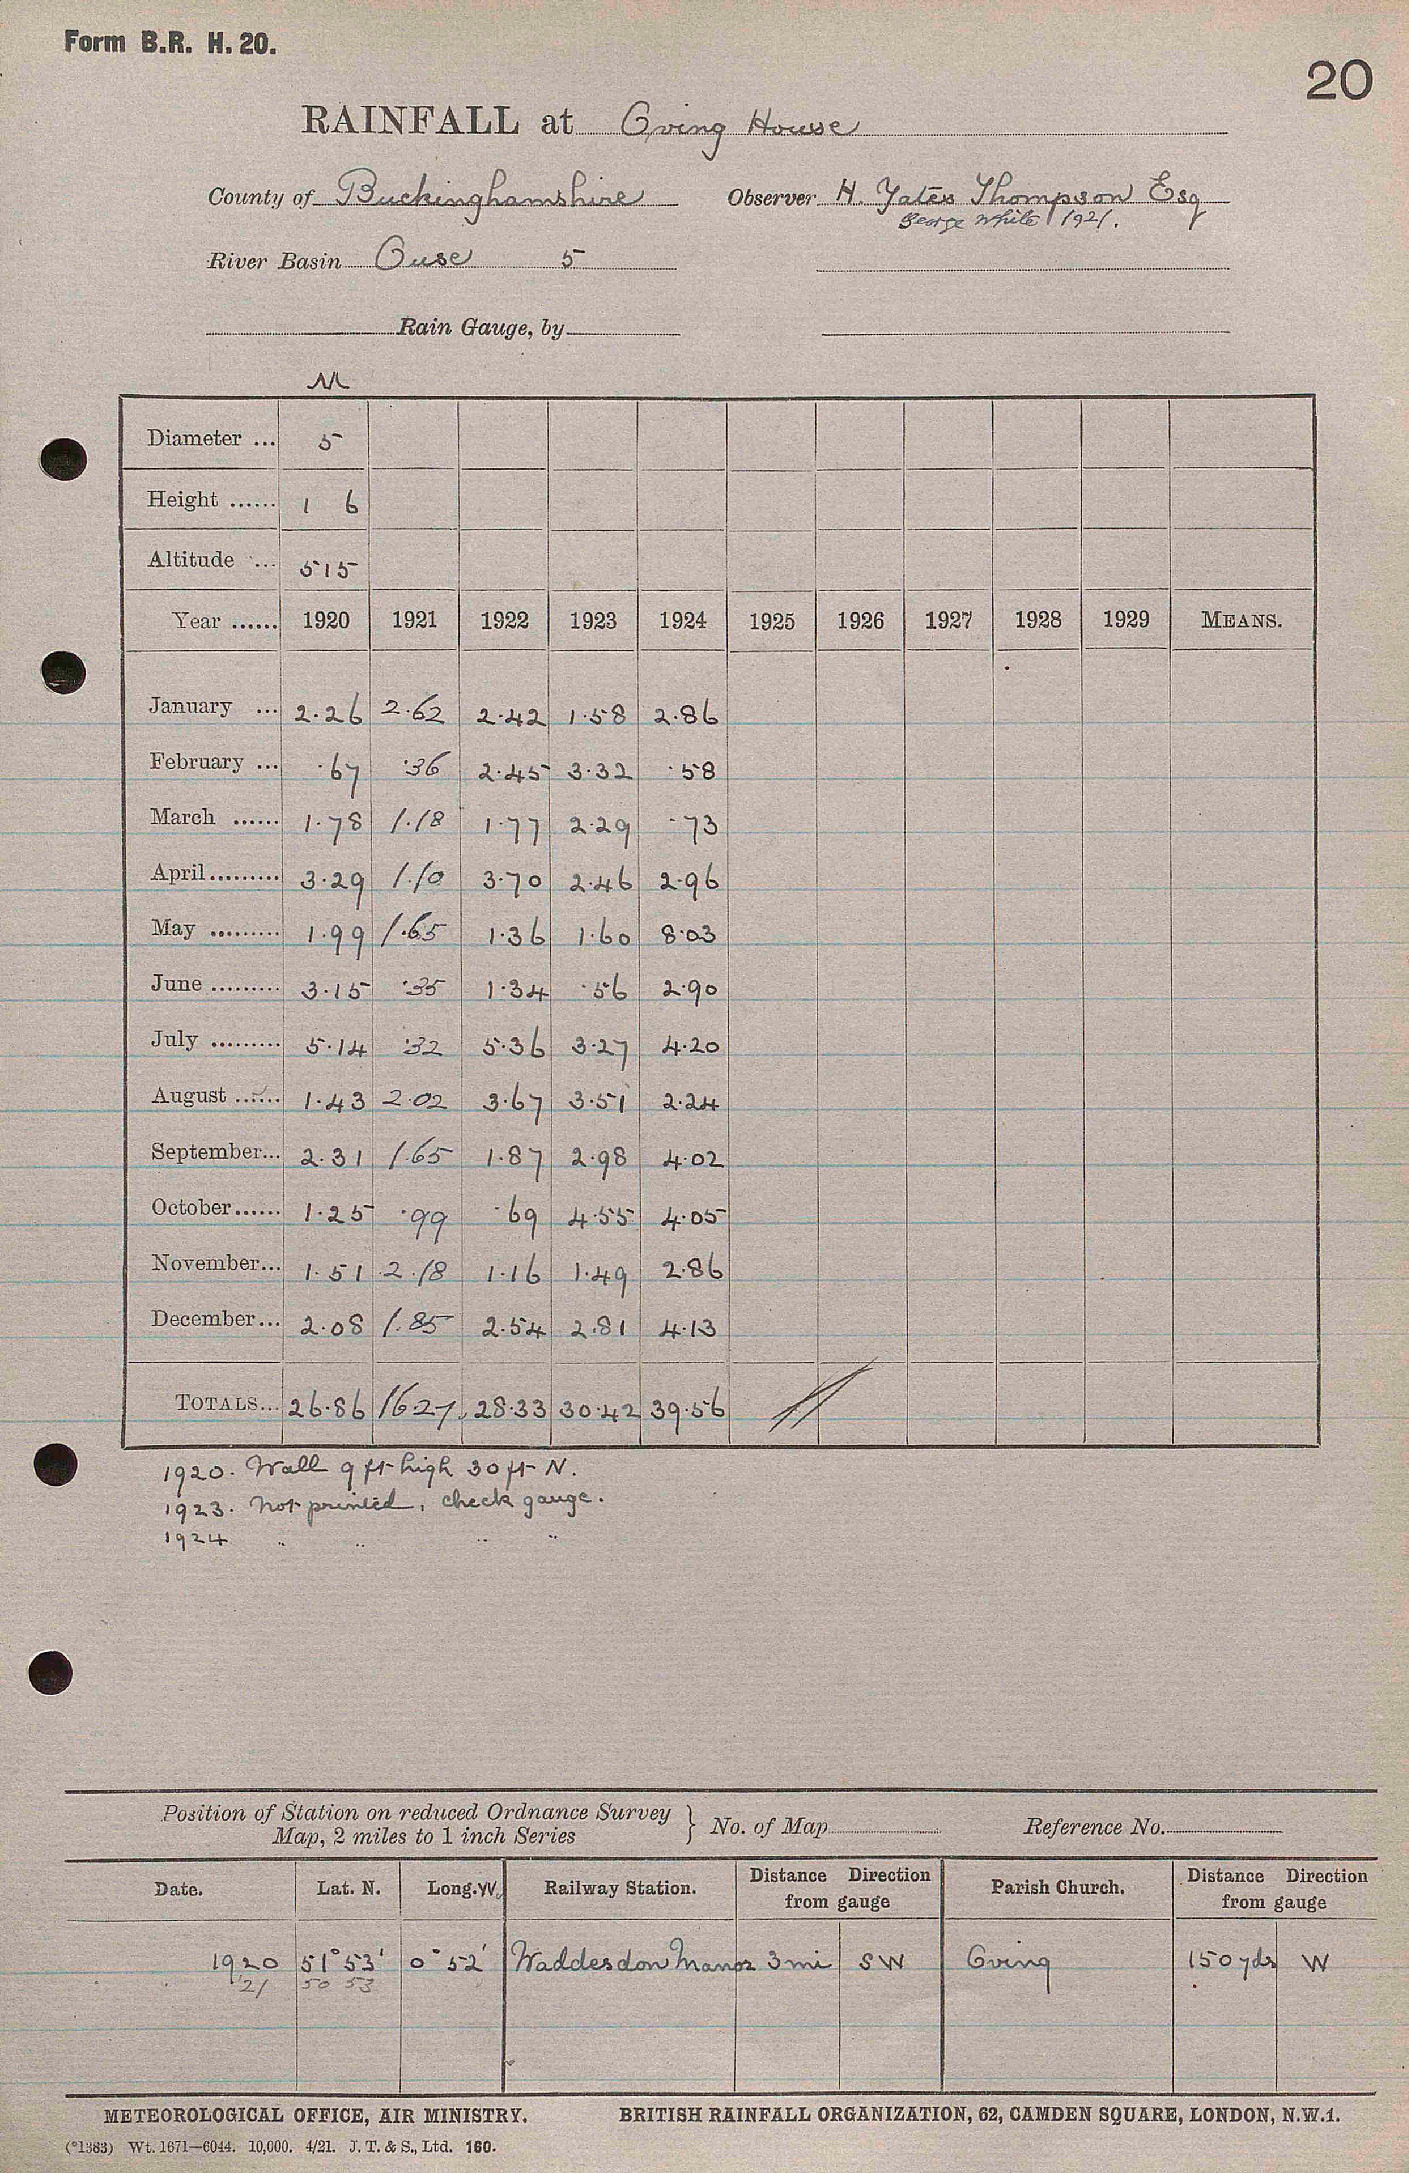 Form B.R. H. 20.
20
RAINFALL at Oving House
County of Buckinghamshire Observer H. Yates Thompson Esq
George White 1921.
River Basin Ouse 5
Rain Gauge, by
M
Diameter ... 5
Height ...... 1 6
Altitude ... 515
Year ...... 1920 1921 1922 1923 1924 1925 1926 1927 1928 1929 MEANS.
January ... 2.26 2.62 2.42 1.58 2.86
February ... .67 .36 2.45 3.32 .58
March ...... 1.78 1.18 1.77 2.29 .73
April ......... 3.29 1.10 3.70 2.46 2.96
May ......... 1.99 1.65 1.36 1.60 8.03
June ......... 3.15 .35 1.34 .56 2.90
July ......... 5.14 .32 5.36 3.27 4.20
August ...... 1.43 2.02 3.67 3.51 2.24
September... 2.31 1.65 1.87 2.98 4.02
October ...... 1.25 .99 .69 4.55 4.05
November... 1.51 2.18 1.16 1.49 2.86
December... 2.08 1.85 2.54 2.81 4.13
TOTALS... 26.86 16.27 28.33 30.42 39.56
1920. Wall 9 ft high 30 ft N.
1923. Not printed, check gauge.
1924 " " " "
Position of Station on reduced Ordnance Survey
Map, 2 miles to 1 inch Series } No. of Map Reference No.
Date. Lat. N. Long. W. Railway Station. Distance Direction from gauge Parish Church. Distance Direction from gauge
1920 51° 53' 0° 52' Waddesdon Manor 3 mi SW Oving 150 yds W
'21 50 53
METEOROLOGICAL OFFICE, AIR MINISTRY. BRITISH RAINFALL ORGANIZATION, 62, CAMDEN SQUARE, LONDON, N.W.1.
(*1383) Wt. 1671—6044. 10,000. 4/21. J. T. & S., Ltd. 160.